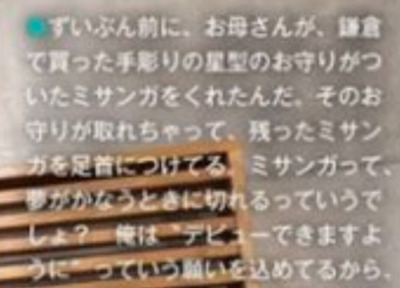 ●ずいぶん前に、お母さんが、鎌倉
で買った手彫りの星型のお守りがつ
いたミサンガをくれたんだ。そのお
守りが取れちゃって、残ったミサン
ガを足首につけてる。ミサンガって、
夢がかなうときに切れるっていうで
しょ？　俺は〝デビューできますよ
うに〟っていう願いを込めてるから、